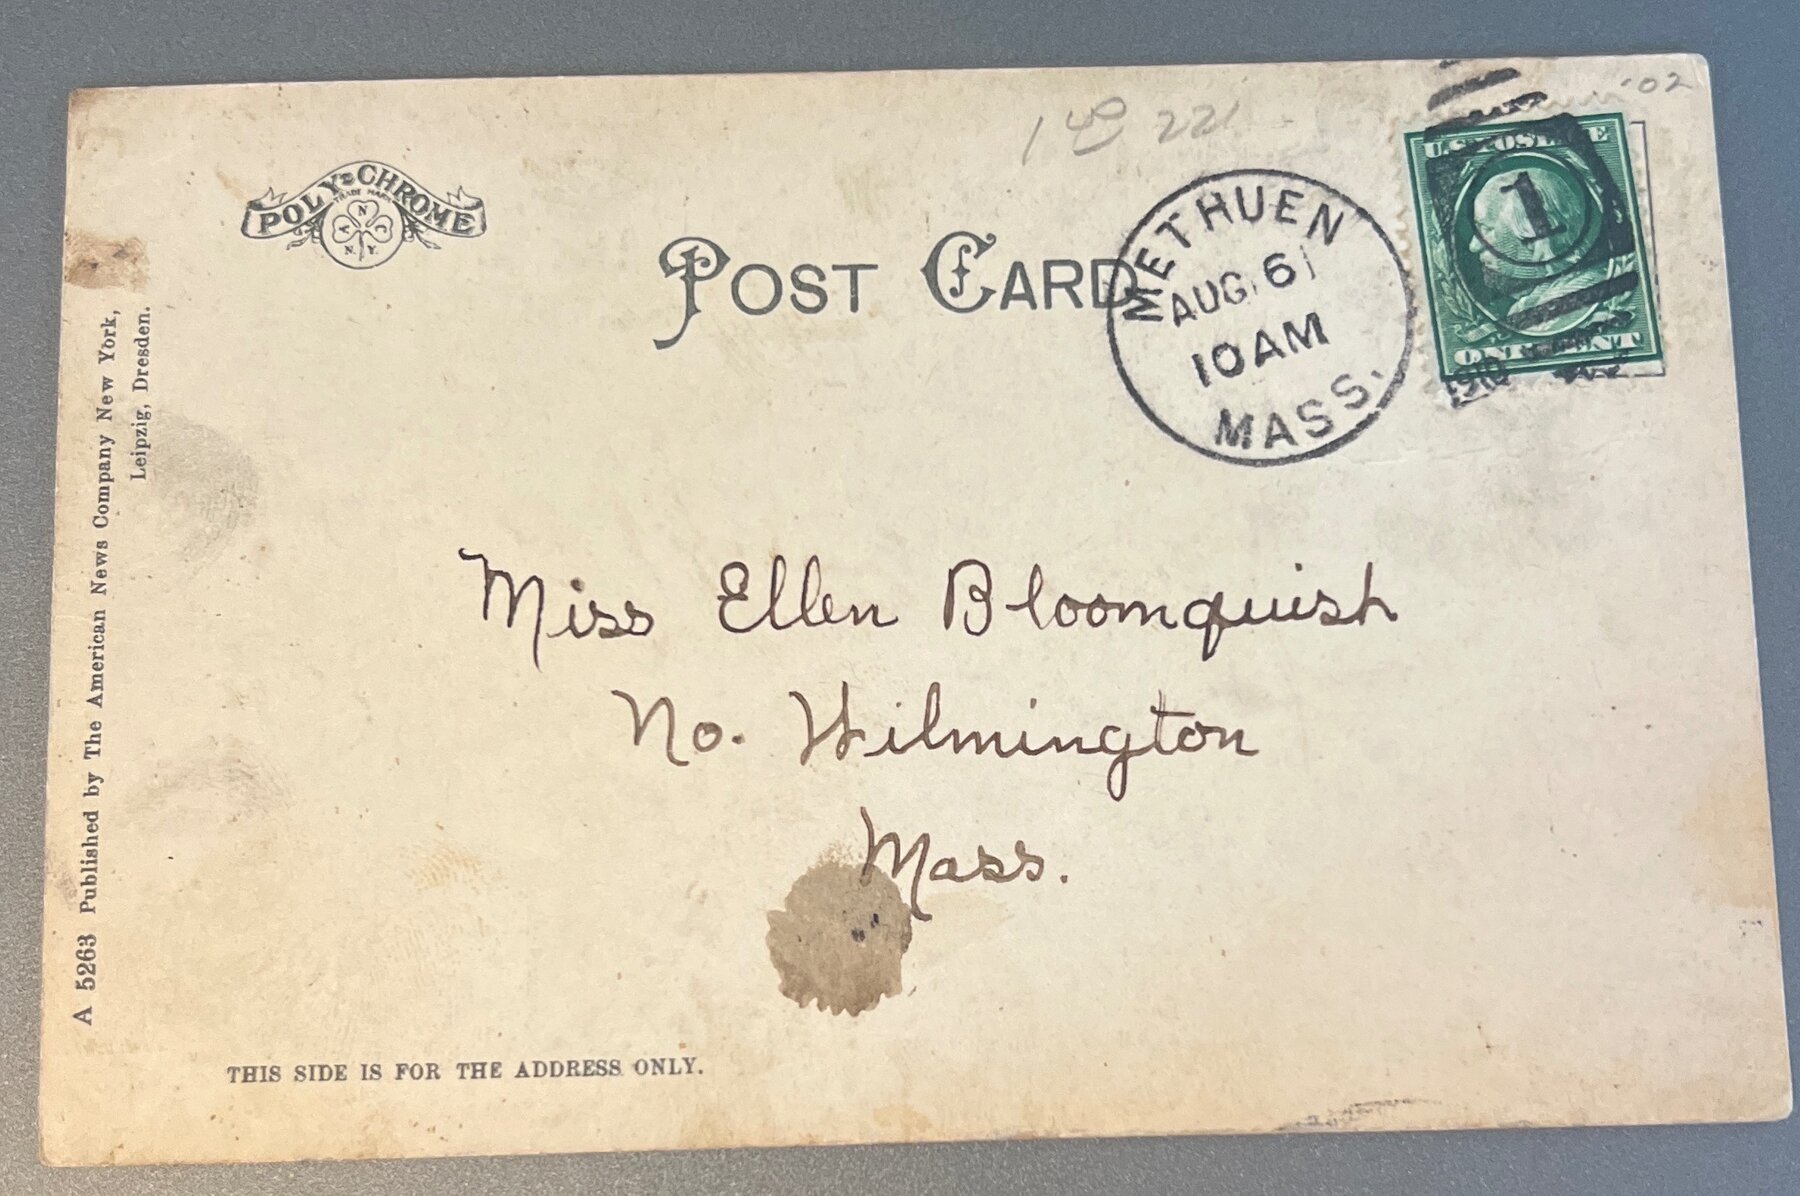 '02
1 40 221
POLY-CHROME
TRADE MARK
N
A C
N.Y.
POST CARD
METHUEN
AUG 6
10 AM
MASS.
U.S. POSTAGE
1
ONE CENT
1910
Miss Ellen Bloomquish
No. Wilmington
Mass.
A 5263 Published by The American News Company New York,
Leipzig, Dresden.
THIS SIDE IS FOR THE ADDRESS ONLY.